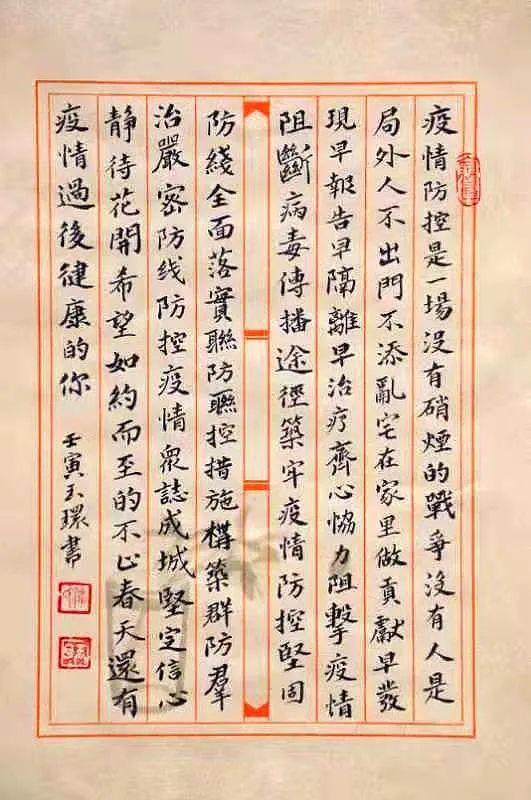 疫情防控是一場没有硝煙的戰爭没有人是
局外人不出門不添亂宅在家里做貢獻早發
現早報告早隔離早治疗齊心協力阻擊疫情
阻斷病毒傳播途徑築牢疫情防控堅固
防綫全面落實聯防聯控措施構築群防羣
治嚴密防线防控疫情衆誌成城堅定信心
静待花開希望如約而至的不止春天還有
疫情過後健康的你
壬寅玉環書